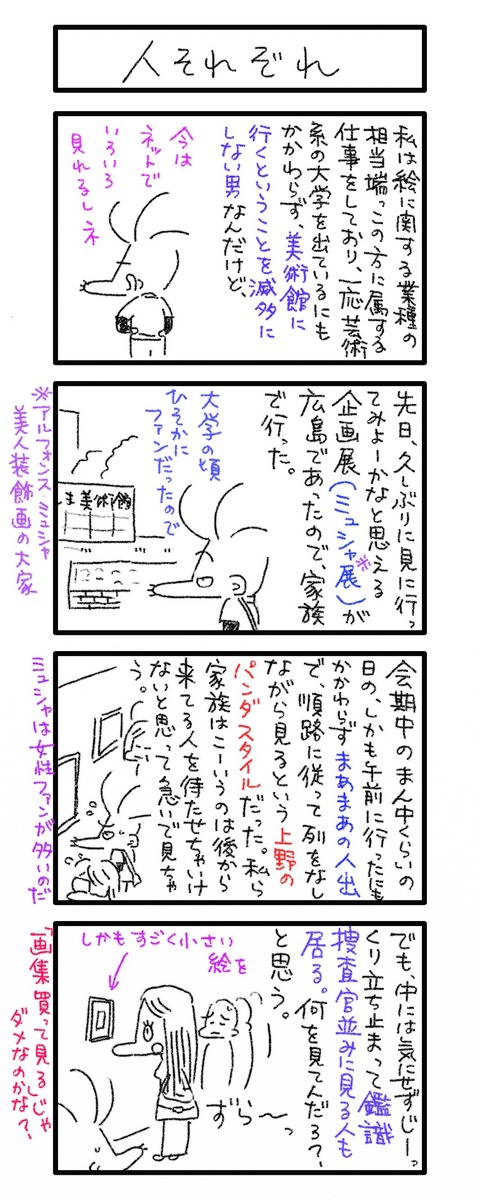 人それぞれ
私は絵に関する業種の
相当端っこの方に属する
仕事をしており、一応芸術
系の大学を出ているにも
かかわらず、美術館に
行くということを滅多に
しない男なんだけど、
今は
ネットで
いろいろ
見れるしネ
先日、久しぶりに見に行っ
てみよーかなと思える
企画展(ミュシャ※展)が
広島であったので、家族
で行った。
大学の頃
ひそかに
ファンだったので
ま美術館
※アルフォンス・ミュシャ
美人装飾画の大家
会期中のまん中くらいの
日の、しかも午前に行ったにも
かかわらずまあまあの人出
で、順路に従って列をなし
ながら見るという上野の
パンダスタイルだった。私ら
家族はこーいうのは後から
来てる人を待たせちゃいけ
ないと思って急いで見ちゃ
う。
ミュシャは女性ファンが多いのだ
でも、中には気にせずじーっ
くり立ち止まって鑑識
捜査官並みに見る人も
居る。何を見てんだろ?
と思う。
しかもすごく小さい
絵を
ずら〜っ
「画集買って見る」じゃ
ダメなのかな?